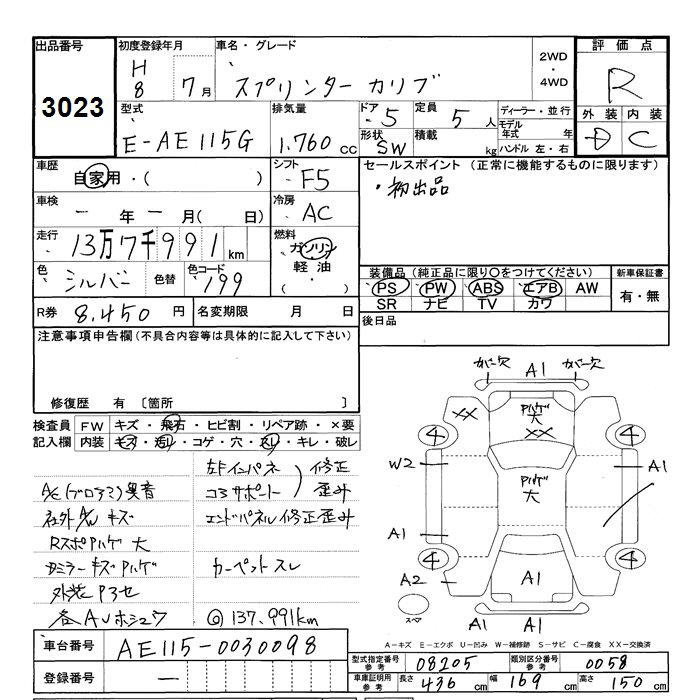 出品番号
3023
初度登録年月
H
8 7 月
車名・グレード
スプリンター カリブ
2WD
・
4WD
評価点
R
外装 内装
D C
型式
E-AE115G
排気量
1.760 cc
ドア
5
定員
5 人
形状
SW
積載
kg
ディーラー・並行
モデル
年式 年
ハンドル 左・右
車歴
自家用・( )
シフト
F5
セールスポイント (正常に機能するものに限ります)
・初出品
車検
一 年 一 月( 日)
冷房
AC
走行
13万7千991 km
燃料
ガソリン
軽油
・( )
色
シルバー
色替
色コード
199
装備品 (純正品に限り○をつけてください)
PS PW ABS エアB AW
SR ナビ TV カワ
新車保証書
有・無
R券 8,450 円
名変期限 月 日
後日品
注意事項申告欄 (不具合内容等は具体的に記入して下さい)
修復歴 有 〔箇所 〕
検査員
記入欄
FW キズ・飛石・ヒビ割・リペア跡・×要
内装 キズ・汚レ・コゲ・穴・スレ・キレ・破レ
左Fインパネ 修正
A/C(ブロアマ)異音 コアサポート 歪み
社外A/W キズ エンドパネル修正歪み
RスポPハゲ 大
ドアミラーキズPハゲ カーペットスレ
外装P3セ
各AUホシュウ ◎137,991km
ガバー欠 A1 ガバー欠
XX
Pハゲ
大
XX
4 4
W2
Pハゲ
大
A1
A1
4 4
A2
A1
スペア
A1 A1
A-キズ E-エクボ U-凹み W-補修跡 S-サビ C-腐食 XX-交換済
車台番号 AE115-0030098
登録番号 一
型式指定番号
参考
08205
類別区分番号
参考
0058
車庫証明用
参考
長さ 436 cm 幅 169 cm 高さ 150 cm